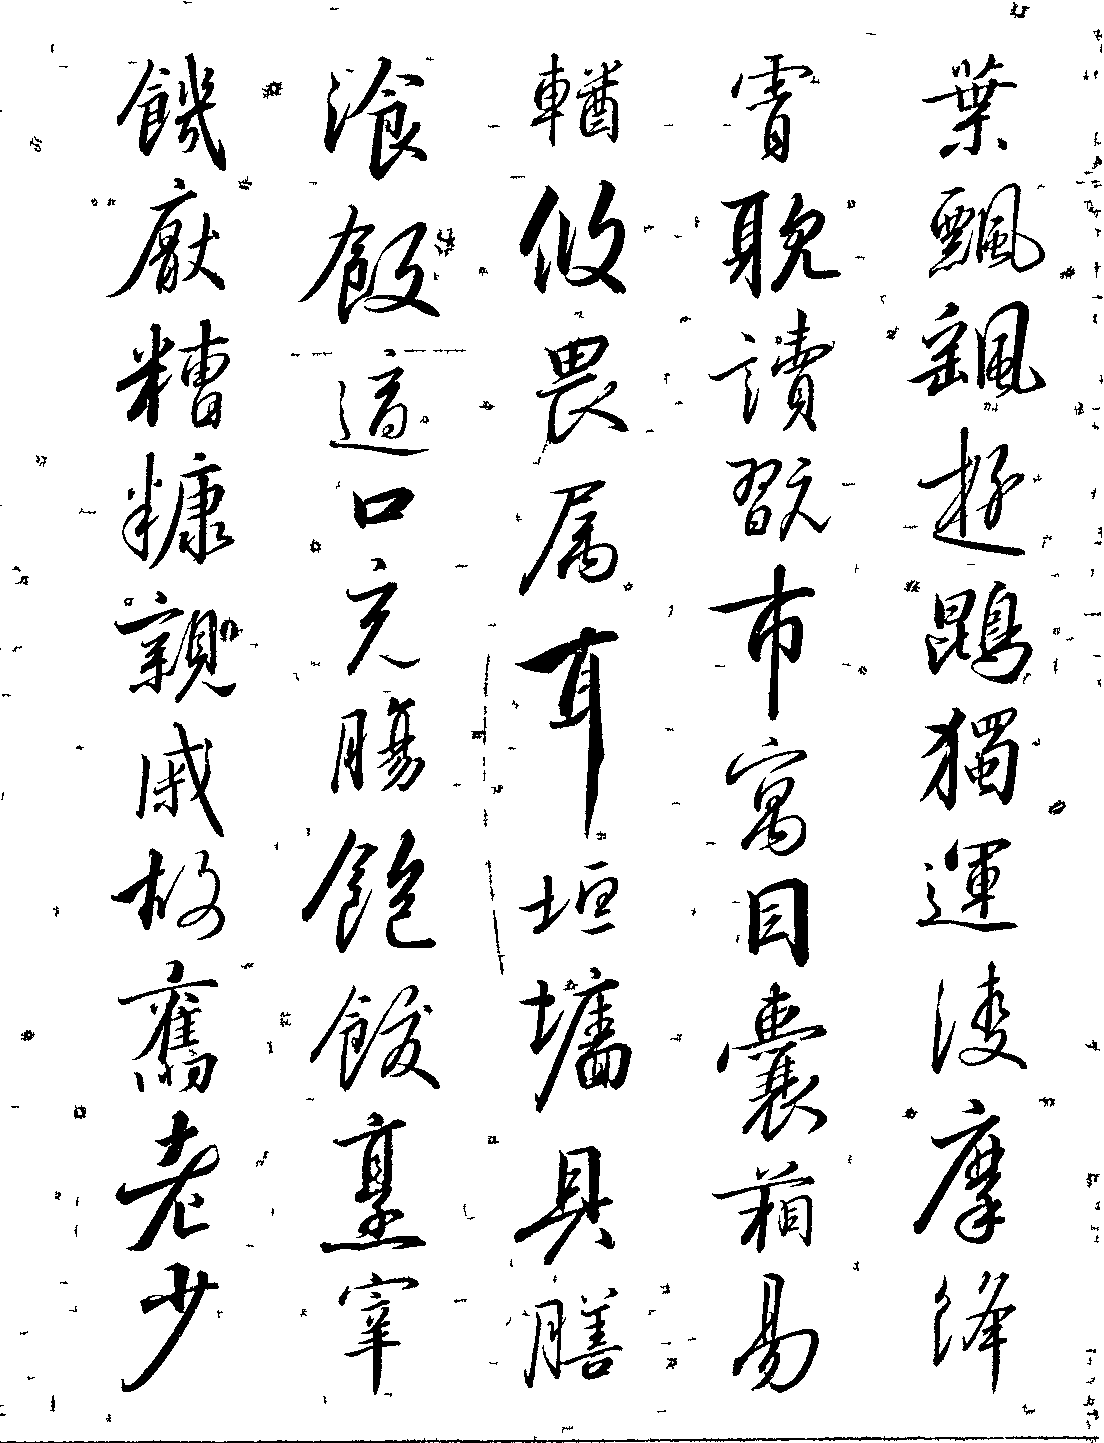 葉飄颻遊鵾獨運凌摩絳
霄耽讀翫市寓目囊箱易
輶攸畏属耳垣墻具膳
湌飯適口充腸飽飫烹宰
饑厭糟糠親戚故舊老少